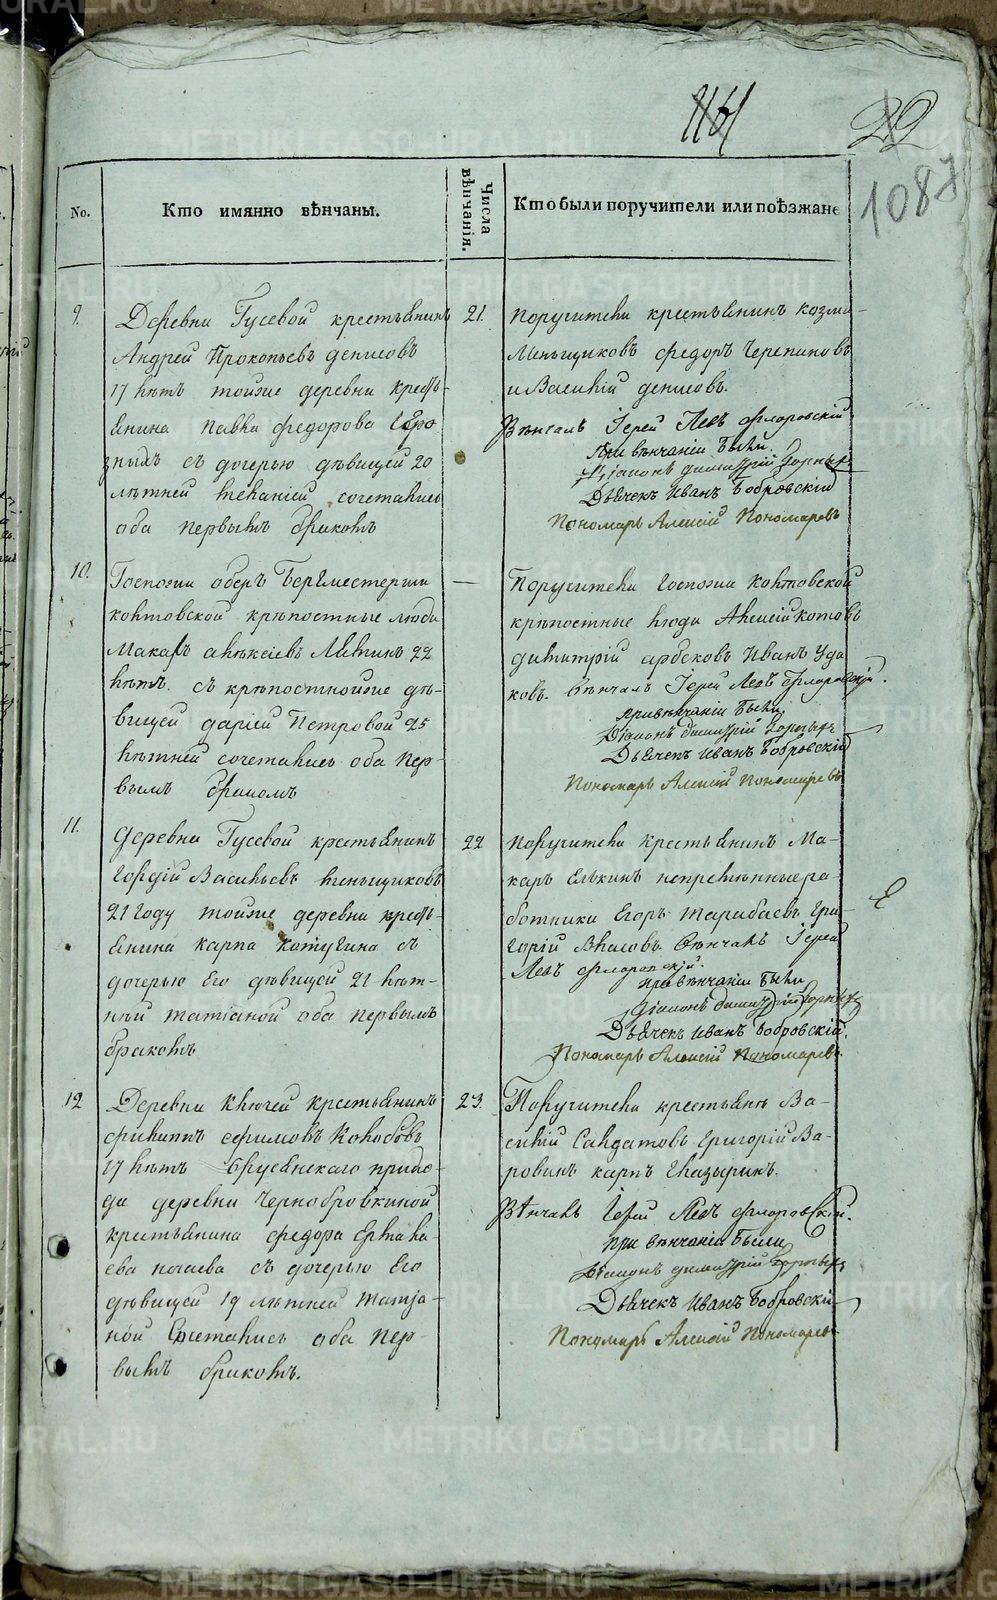 1161
22
1087
No.
Кто имянно вѣнчаны.
Числа вѣнчанія.
Кто были поручители или поѣзжане
9.
Деревни Гусевой крестьянинъ
Андрей Прокопьевъ денисовъ
17 лѣтъ тойже деревни кресть-
янина Павла федорова
съ дочерью дѣвицей 20
лѣтней сочетались
оба первымъ бракомъ
21.
Поручители крестьянинъ козма
Меньщиковъ федоръ Черепановъ
и Василій денисовъ.
Вѣнчалъ Іерей Левъ флоровскій
При вѣнчаніи были
Діаконъ димитрій
Дьячекъ Иванъ Бобровскій
Пономарь Алексій Пономаревъ
10.
Госпожи оберъ Бергмейстерши
крѣпостные люди
Макаръ алѣксіевъ 22
лѣтъ. съ крѣпостнойже дѣ-
вицей даріей Петровой 25
лѣтней сочетались оба пер-
вымъ бракомъ
—
Поручители госпожи
крѣпостные люди Алексій котовъ
димитрій арбековъ Иванъ Уда
ковъ. вѣнчалъ Іерей Левъ флоровскій.
при вѣнчаніи были
Діаконъ димитрій
Дьячекъ Иванъ Бобровскій
Пономарь Алексій Пономаревъ
11.
деревни Гусевой крестьянинъ
Гордій Васильевъ меньщиковъ
21 году тойже деревни кресть-
янина карпа котугина съ
дочерью Его дѣвицей 21 лѣт-
ней татіаной оба первымъ
бракомъ
22
поручители крестьянинъ Ма-
каръ Елькинъ непремѣнные ра-
ботники Егоръ тарабаевъ Гри-
горій Власовъ. Вѣнчалъ Іерей
Левъ флоровскій.
при вѣнчаніи были
Діаконъ димитрій
Дьячекъ Иванъ Бобровскій.
Пономарь Алексій Пономаревъ.
12
Деревни Ключей крестьянинъ
филиппъ ефимовъ Колобовъ
17 лѣтъ Брусянскаго прихо-
да деревни Чернобровкиной
крестьянина федора Ермола-
ева съ дочерью Его
дѣвицей 19 лѣтней татіа-
ной Сочетались оба пер-
вымъ бракомъ.
23.
Поручители крестьяне Ва-
силій Салдатовъ григорій Ва-
ровинъ карпъ Глазыринъ.
Вѣнчалъ Іерей Левъ флоровскій.
при вѣнчаніи были
Діаконъ димитрій
Дьячекъ Иванъ Бобровскій
Пономарь Алексій Пономаревъ
METRIKI.GASO-URAL.RU